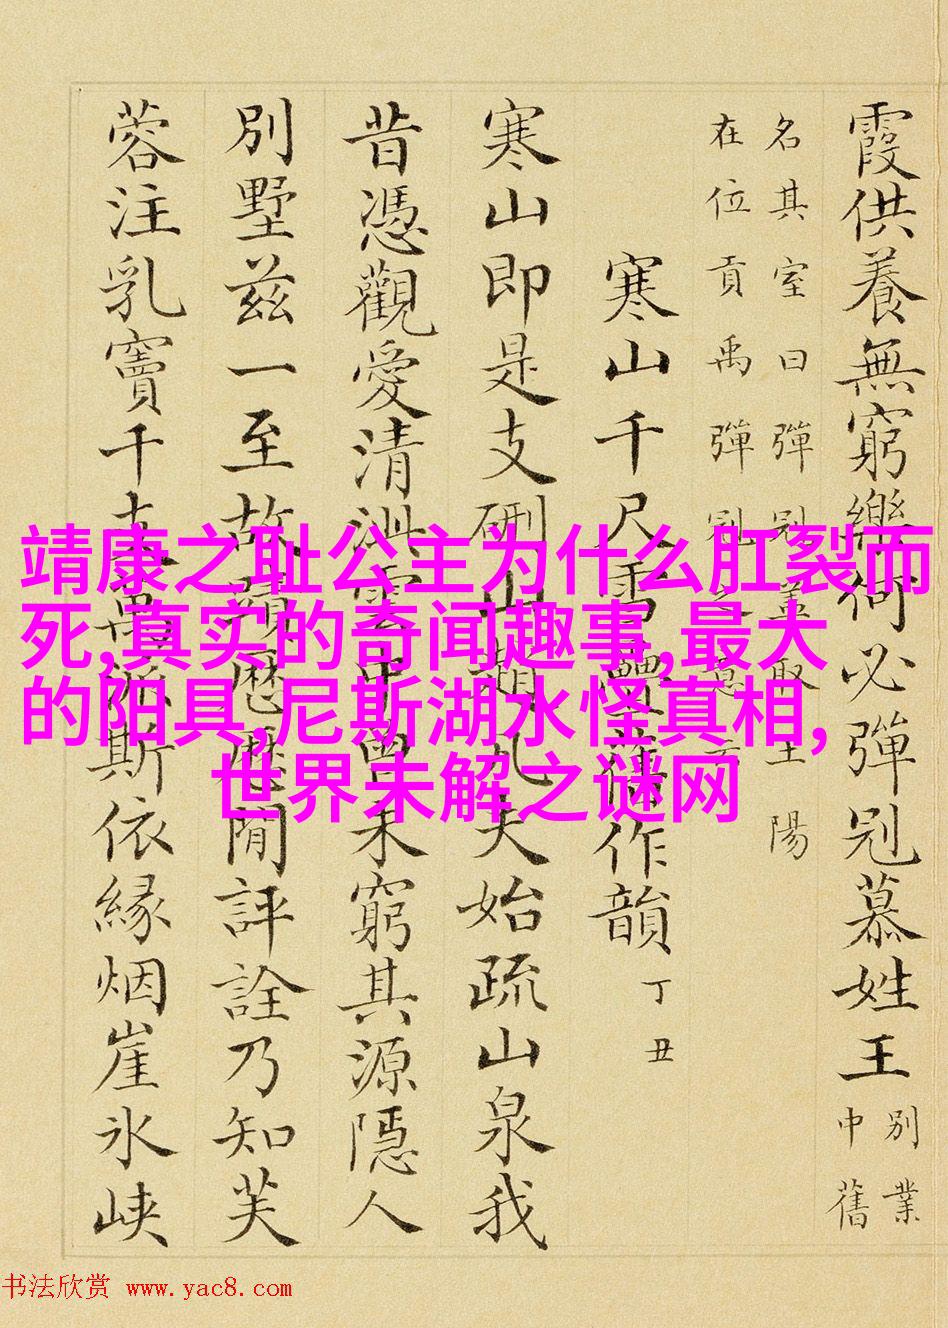 霞供養無窮樂何必彈冠慕姓王
別業
中舊
名其室曰彈冠蓋取王陽
在位貢禹彈冠之意云
寒山千尺雪疊舊作韻
丁丑
寒山即是支硎山趙凡夫始疏山泉我
昔憑觀愛清泚雲中曾未窮其源隱人
別墅茲一至故蹟歷歷閒評詮乃知芙
蓉注乳竇千支萬派斯依緣烟崖氷峽
靖康之耻公主为什么肛裂而
死,真实的奇闻趣事,最大
的阳具,尼斯湖水怪真相,
世界未解之谜网
书法欣赏 www.yac8.com